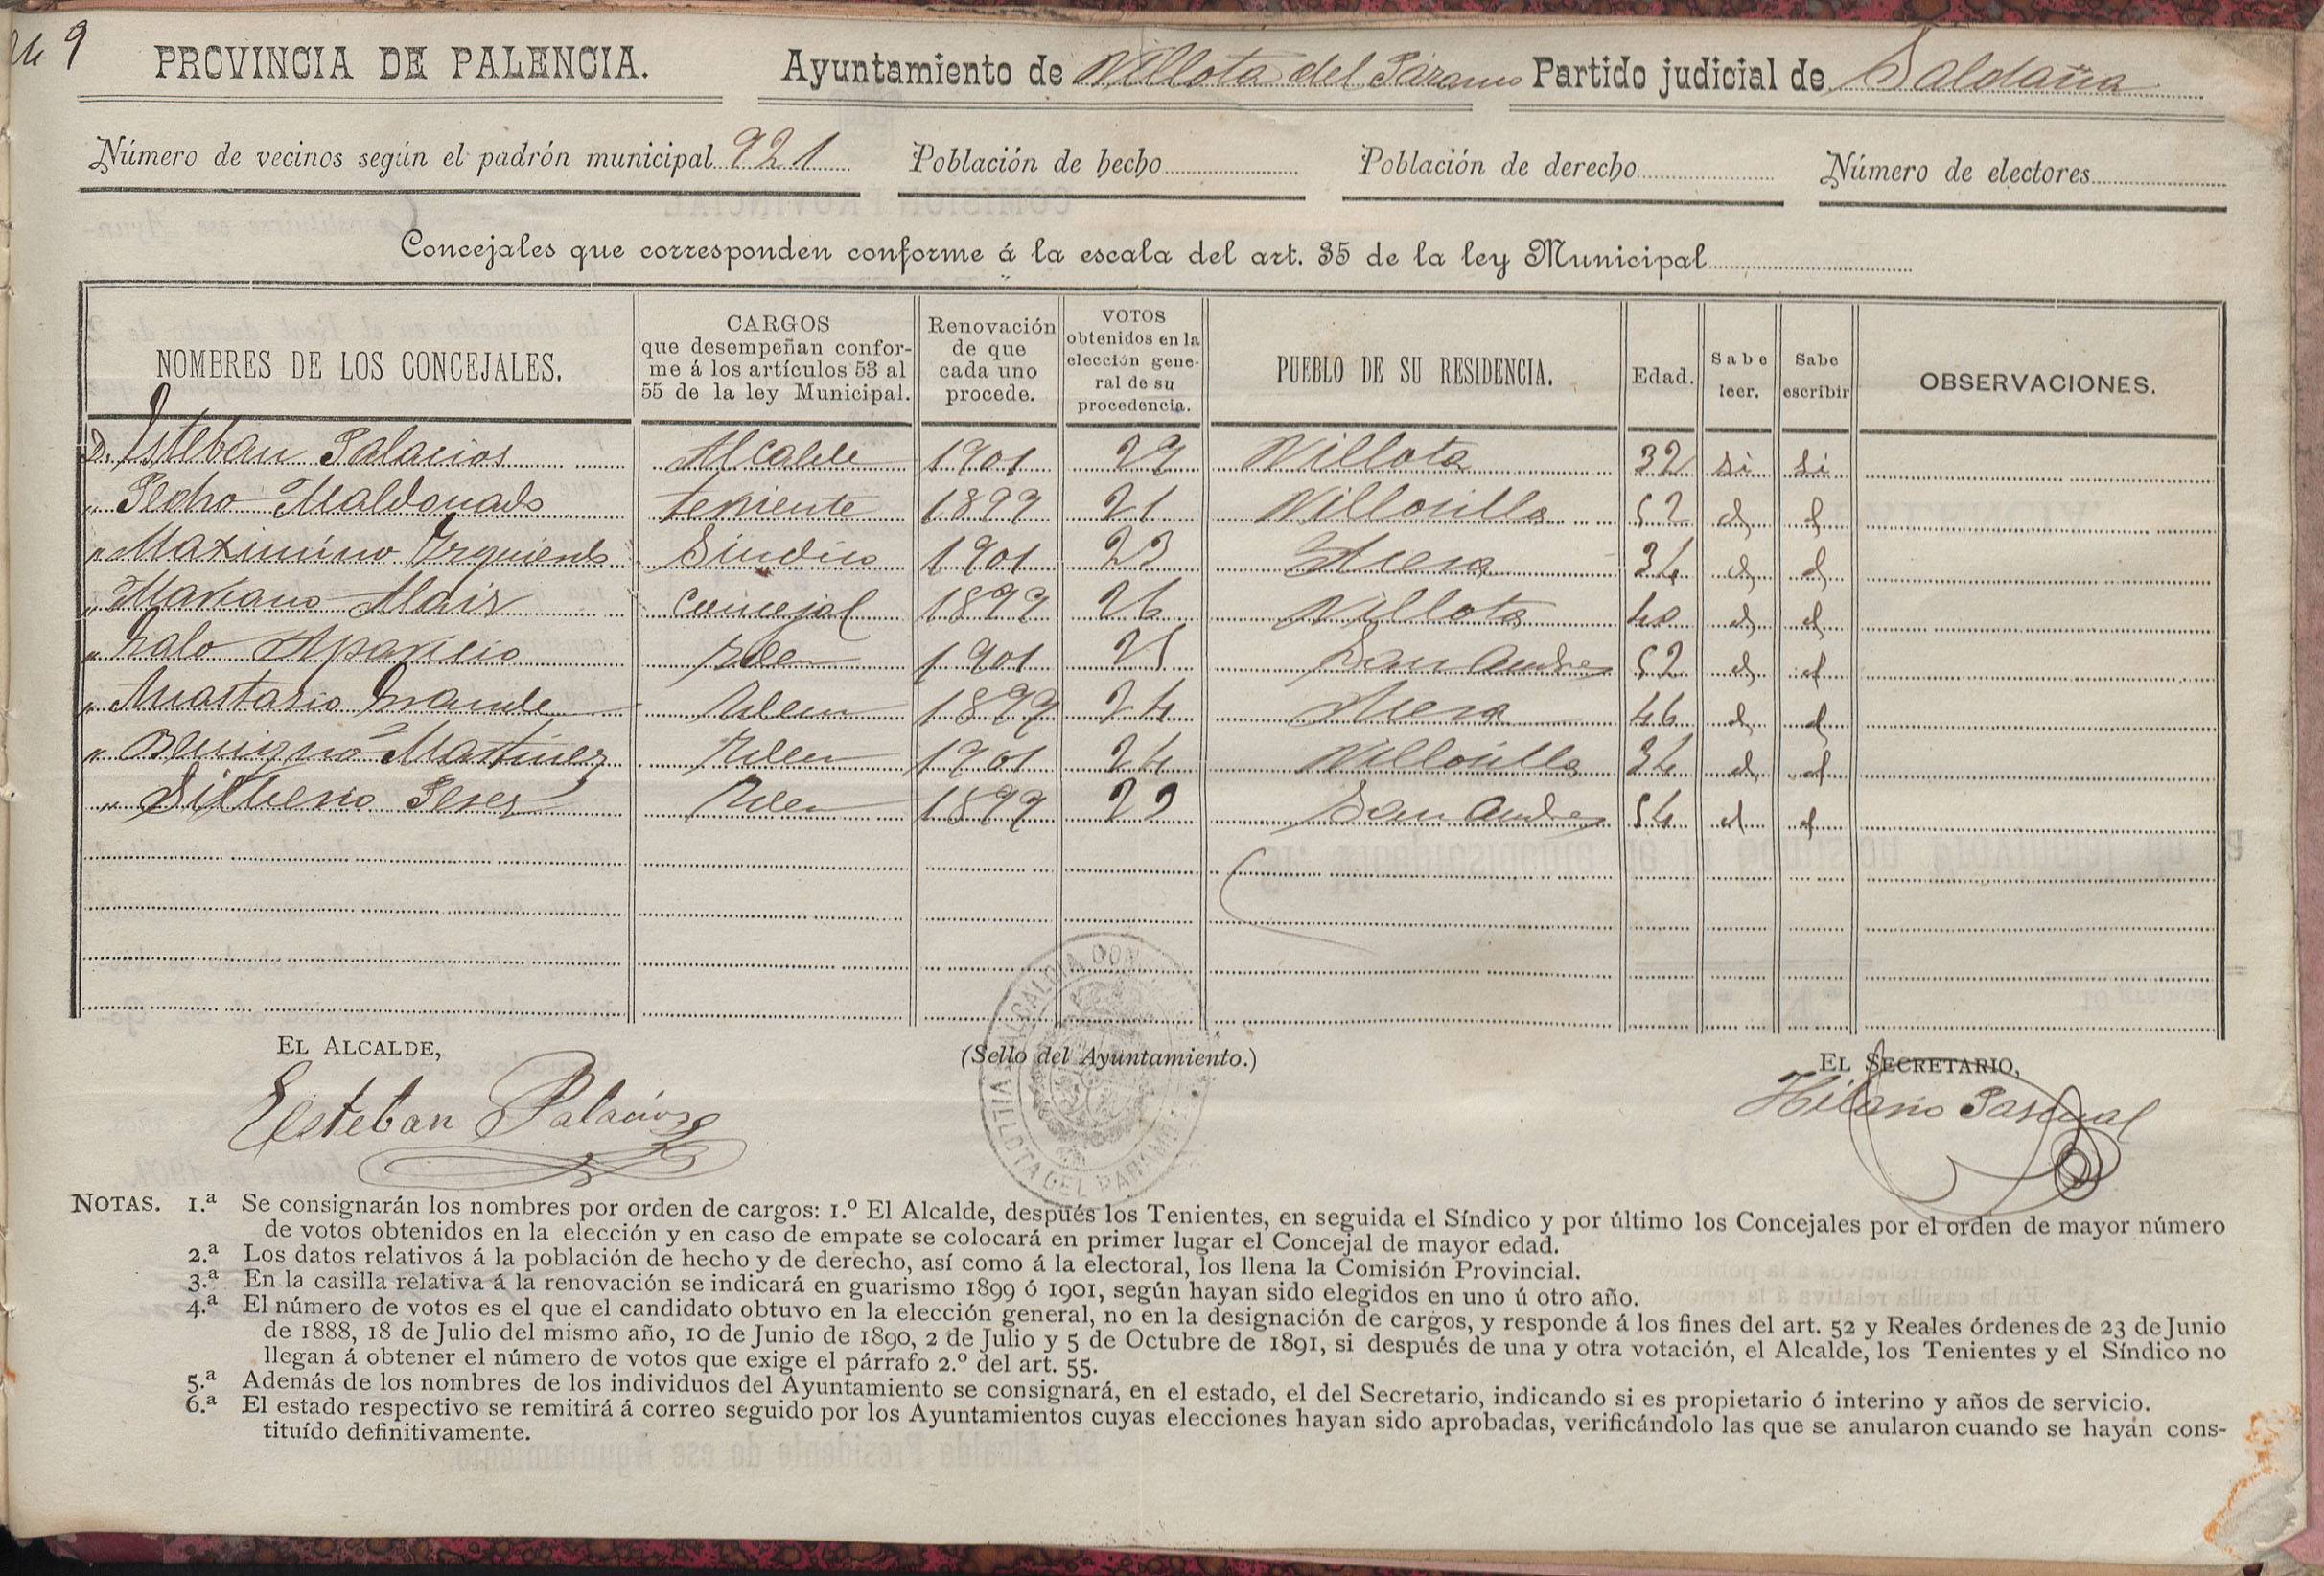 249
PROVINCIA DE PALENCIA. Ayuntamiento de Villota del Páramo Partido judicial de Saldaña
Número de vecinos según el padrón municipal 921 Población de hecho Población de derecho Número de electores
Concejales que corresponden conforme á la escala del art. 35 de la ley Municipal
NOMBRES DE LOS CONCEJALES. CARGOS que desempeñan confor-me á los artículos 53 al 55 de la ley Municipal. Renovación de que cada uno procede. VOTOS obtenidos en la elección gene-ral de su procedencia. PUEBLO DE SU RESIDENCIA. Edad. Sabe leer. Sabe escribir OBSERVACIONES.
D. Esteban Palacios Alcalde 1901 29 Villota 32 si si
" Pedro Maldonado teniente 1899 21 Villosilla 52 id id
" Maximino Yzquierdo Sindico 1901 23 Acera 34 id id
" Mariano Alaiz Concejal 1899 26 Villota 40 id id
" Galo Aparicio Idem 1901 25 San Andres 52 id id
" Anastasio Grande Idem 1899 24 Acera 46 id id
" Benigno Martinez Idem 1901 24 Villosilla 34 id id
" Silberio Perez Idem 1899 23 San Andres 54 id id
EL ALCALDE, (Sello del Ayuntamiento.) EL SECRETARIO,
Esteban Palacios Hilario Pascual
ALCALDIA CON
VILLOTA DEL PARAMO
NOTAS. 1.ª Se consignarán los nombres por orden de cargos: 1.º El Alcalde, después los Tenientes, en seguida el Síndico y por último los Concejales por el orden de mayor número
de votos obtenidos en la elección y en caso de empate se colocará en primer lugar el Concejal de mayor edad.
2.ª Los datos relativos á la población de hecho y de derecho, así como á la electoral, los llena la Comisión Provincial.
3.ª En la casilla relativa á la renovación se indicará en guarismo 1899 ó 1901, según hayan sido elegidos en uno ú otro año.
4.ª El número de votos es el que el candidato obtuvo en la elección general, no en la designación de cargos, y responde á los fines del art. 52 y Reales órdenes de 23 de Junio
de 1888, 18 de Julio del mismo año, 10 de Junio de 1890, 2 de Julio y 5 de Octubre de 1891, si después de una y otra votación, el Alcalde, los Tenientes y el Síndico no
llegan á obtener el número de votos que exige el párrafo 2.º del art. 55.
5.ª Además de los nombres de los individuos del Ayuntamiento se consignará, en el estado, el del Secretario, indicando si es propietario ó interino y años de servicio.
6.ª El estado respectivo se remitirá á correo seguido por los Ayuntamientos cuyas elecciones hayan sido aprobadas, verificándolo las que se anularon cuando se hayan cons-
tituído definitivamente.